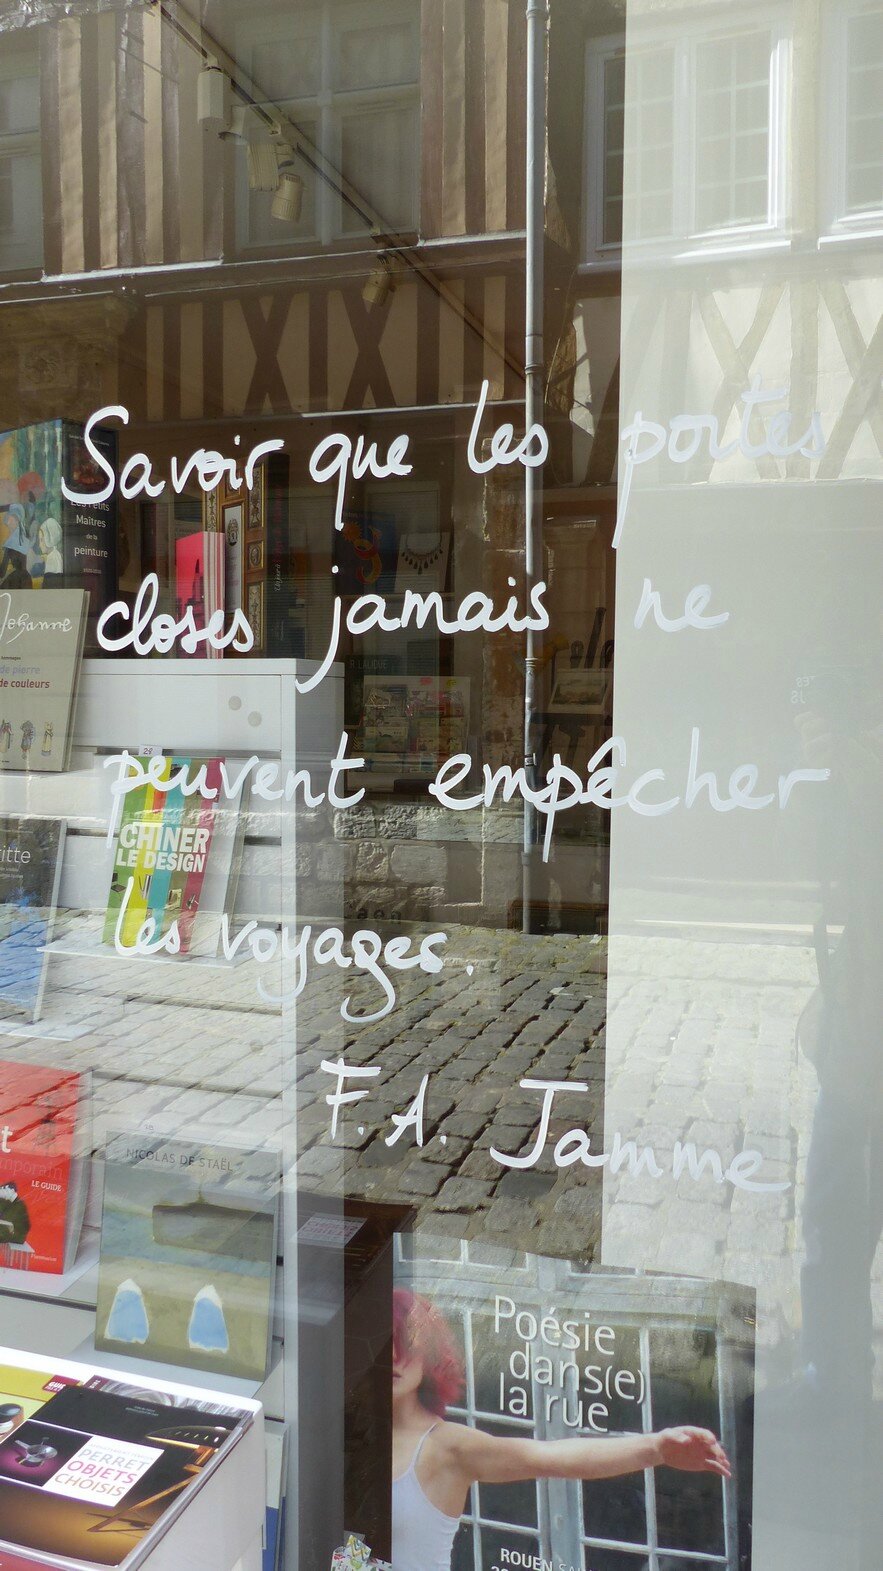 Savoir que les portes
closes jamais ne
peuvent empêcher
les voyages.
F. A. Jamme
Les Petits
Maîtres
de la
peinture
de pierre
de couleurs
R. LALIQUE
28
CHINER
LE DESIGN
LE GUIDE
NICOLAS DE STAËL
PERRET
OBJETS
CHOISIS
Poésie
dans(e)
la rue
ROUEN